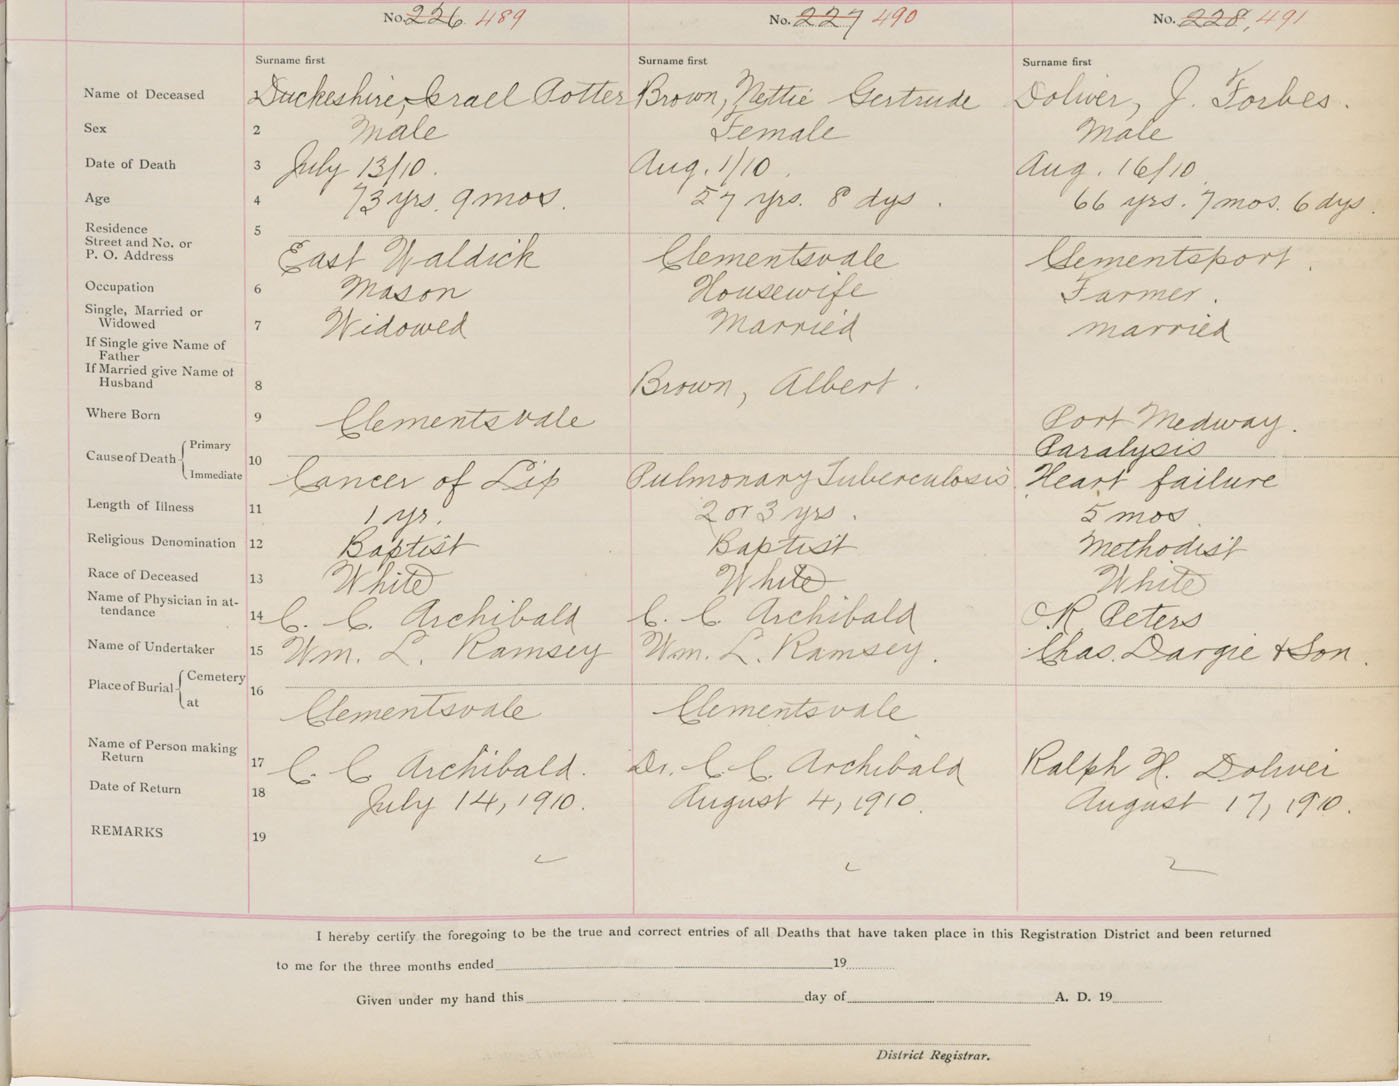 No. 226 489 No. 227 490 No. 228, 491
Surname first Surname first Surname first
Name of Deceased 1 Duckeshire, Israel Potter Brown, Nettie Gertrude Doliver, J. Forbes.
Sex 2 Male Female Male
Date of Death 3 July 13/10. Aug. 1/10. Aug. 16/10
Age 4 73 yrs. 9 mos. 27 yrs. 8 dys. 66 yrs. 7 mos. 6 dys.
Residence 5
Street and No. or
P. O. Address East Waldick Clementsvale Clementsport.
Occupation 6 Mason Housewife Farmer.
Single, Married or
Widowed 7 Widowed Married married
If Single give Name of
Father
If Married give Name of
Husband 8 Brown, Albert.
Where Born 9 Clementsvale Port Medway.
Cause of Death Primary 10 Paralysis
Immediate Cancer of Lip Pulmonary Tuberculosis Heart failure
Length of Illness 11 1 yr. 2 or 3 yrs. 5 mos
Religious Denomination 12 Baptist Baptist Methodist
Race of Deceased 13 White White White
Name of Physician in at-
tendance 14 C. C. Archibald C. C. Archibald R Peters
Name of Undertaker 15 Wm. L. Ramsey Wm. L. Ramsey. Chas. Dargie & Son.
Place of Burial Cemetery 16
at Clementsvale Clementsvale
Name of Person making
Return 17 C. C. Archibald. Dr. C. C. Archibald Ralph H. Doliver
Date of Return 18 July 14, 1910. August 4, 1910. August 17, 1910.
REMARKS 19
I hereby certify the foregoing to be the true and correct entries of all Deaths that have taken place in this Registration District and been returned
to me for the three months ended 19
Given under my hand this day of A. D. 19
District Registrar.